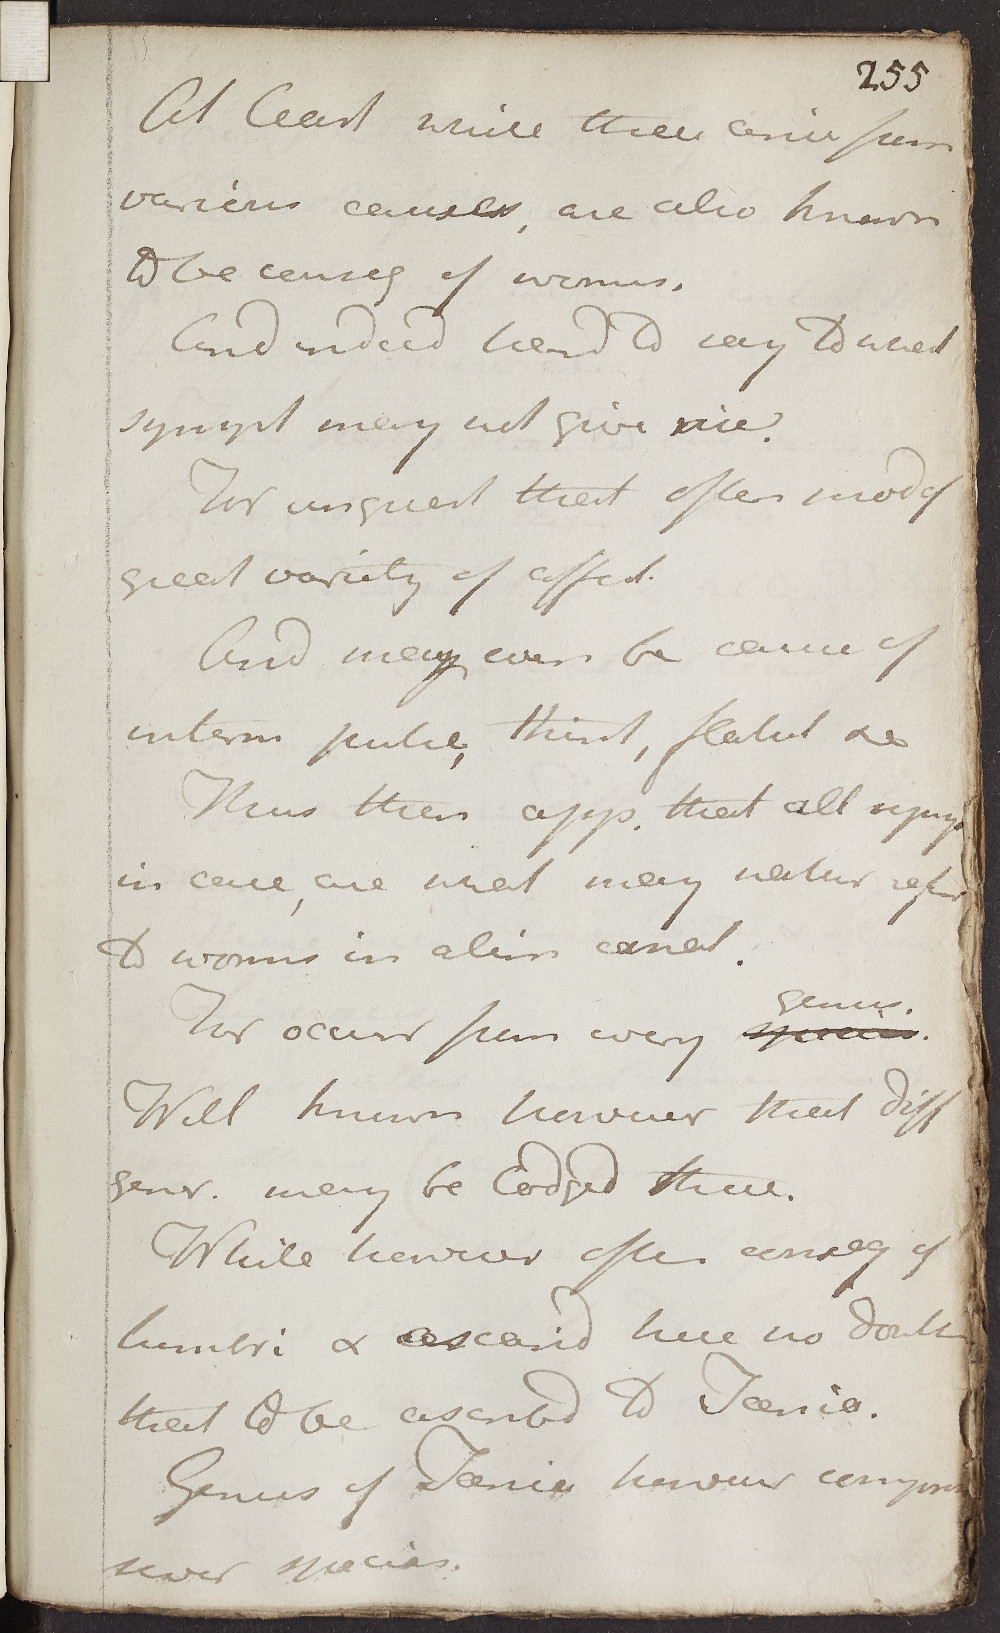 255
At least while these arise from
various causes, are also known
to be conseq of worms.
And indeed hard to say to what
sympt may not give rise.
For unquest that often prod of
great variety of affect.
And may even be cause of
interm pulse, thirst, flatul &c
Thus then app. that all symp
in case, are what may natur refer
to worms in alim canal.
genus.
For occurr from every species.
Well known however that diff
gener. may be lodged there.
While however often conseq of
lumbri & ascarid here no doubt
that to be ascribd to Taenia.
Genus of Taenia however compre
sever species.